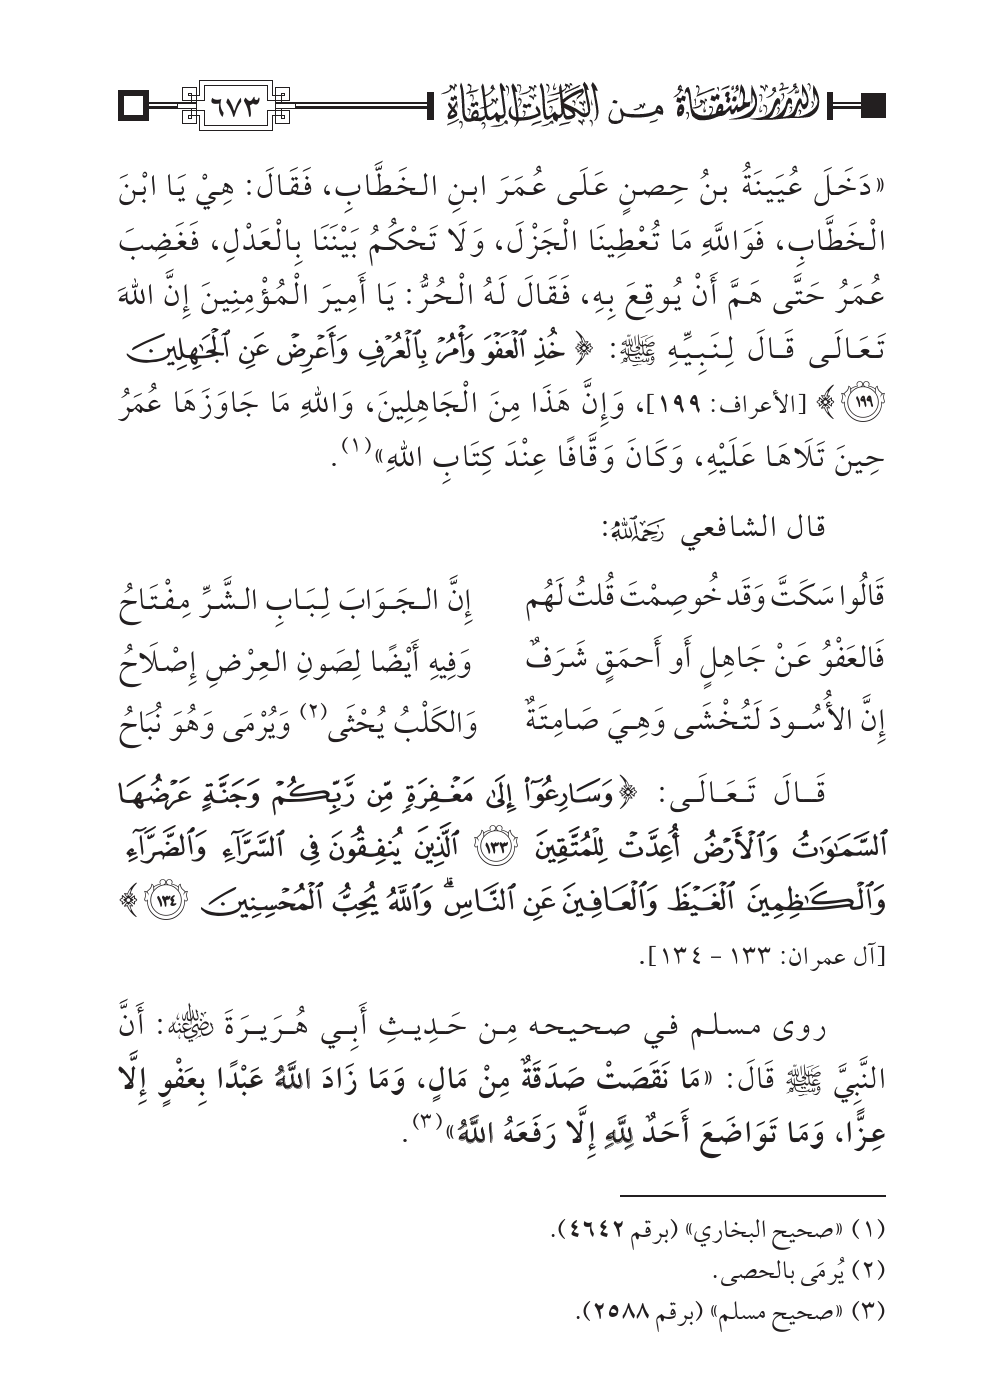 الدُّرَرُ المُنْتَقَاةُ مِن الكَلِمَاتِ المُلْقَاةِ ٦٧٣
«دَخَلَ عُيَينَةُ بنُ حِصنٍ عَلَى عُمَرَ ابنِ الخَطَّابِ، فَقَالَ: هِيْ يَا ابْنَ
الْخَطَّابِ، فَوَاللَّهِ مَا تُعْطِينَا الْجَزْلَ، وَلَا تَحْكُمُ بَيْنَنَا بِالْعَدْلِ، فَغَضِبَ
عُمَرُ حَتَّى هَمَّ أَنْ يُوقِعَ بِهِ، فَقَالَ لَهُ الْحُرُّ: يَا أَمِيرَ الْمُؤْمِنِينَ إِنَّ اللهَ
تَعَالَى قَالَ لِنَبِيِّهِ ﷺ: ﴿خُذِ ٱلۡعَفۡوَ وَأۡمُرۡ بِٱلۡعُرۡفِ وَأَعۡرِضۡ عَنِ ٱلۡجَٰهِلِينَ
١٩٩﴾ [الأعراف: ١٩٩]، وَإِنَّ هَذَا مِنَ الْجَاهِلِينَ، وَاللهِ مَا جَاوَزَهَا عُمَرُ
حِينَ تَلَاهَا عَلَيْهِ، وَكَانَ وَقَّافًا عِنْدَ كِتَابِ اللهِ»(١).
قال الشافعي رَحِمَهُ ٱللَّهُ:
قَالُوا سَكَتَّ وَقَد خُوصِمْتَ قُلتُ لَهُم إِنَّ الجَوَابَ لِبَابِ الشَّرِّ مِفْتَاحُ
فَالعَفْوُ عَنْ جَاهِلٍ أَو أَحمَقٍ شَرَفٌ وَفِيهِ أَيْضًا لِصَونِ العِرْضِ إِصْلَاحُ
إِنَّ الأُسُودَ لَتُخْشَى وَهِيَ صَامِتَةٌ وَالكَلْبُ يُحْثَى(٢) وَيُرْمَى وَهُوَ نُبَاحُ
قَالَ تَعَالَى: ﴿وَسَارِعُوٓاْ إِلَىٰ مَغۡفِرَةٖ مِّن رَّبِّكُمۡ وَجَنَّةٍ عَرۡضُهَا
ٱلسَّمَٰوَٰتُ وَٱلۡأَرۡضُ أُعِدَّتۡ لِلۡمُتَّقِينَ ١٣٣ ٱلَّذِينَ يُنفِقُونَ فِي ٱلسَّرَّآءِ وَٱلضَّرَّآءِ
وَٱلۡكَٰظِمِينَ ٱلۡغَيۡظَ وَٱلۡعَافِينَ عَنِ ٱلنَّاسِۗ وَٱللَّهُ يُحِبُّ ٱلۡمُحۡسِنِينَ ١٣٤﴾
[آل عمران: ١٣٣ – ١٣٤].
روى مسلم في صحيحه مِن حَدِيثِ أَبِي هُرَيرَةَ رَضِيَ اللهُ عَنْهُ: أَنَّ
النَّبِيَّ ﷺ قَالَ: «مَا نَقَصَتْ صَدَقَةٌ مِنْ مَالٍ، وَمَا زَادَ اللَّهُ عَبْدًا بِعَفْوٍ إِلَّا
عِزًّا، وَمَا تَوَاضَعَ أَحَدٌ لِلَّهِ إِلَّا رَفَعَهُ اللَّهُ»(٣).
(١) «صحيح البخاري» (برقم ٤٦٤٢).
(٢) يُرمَى بالحصى.
(٣) «صحيح مسلم» (برقم ٢٥٨٨).